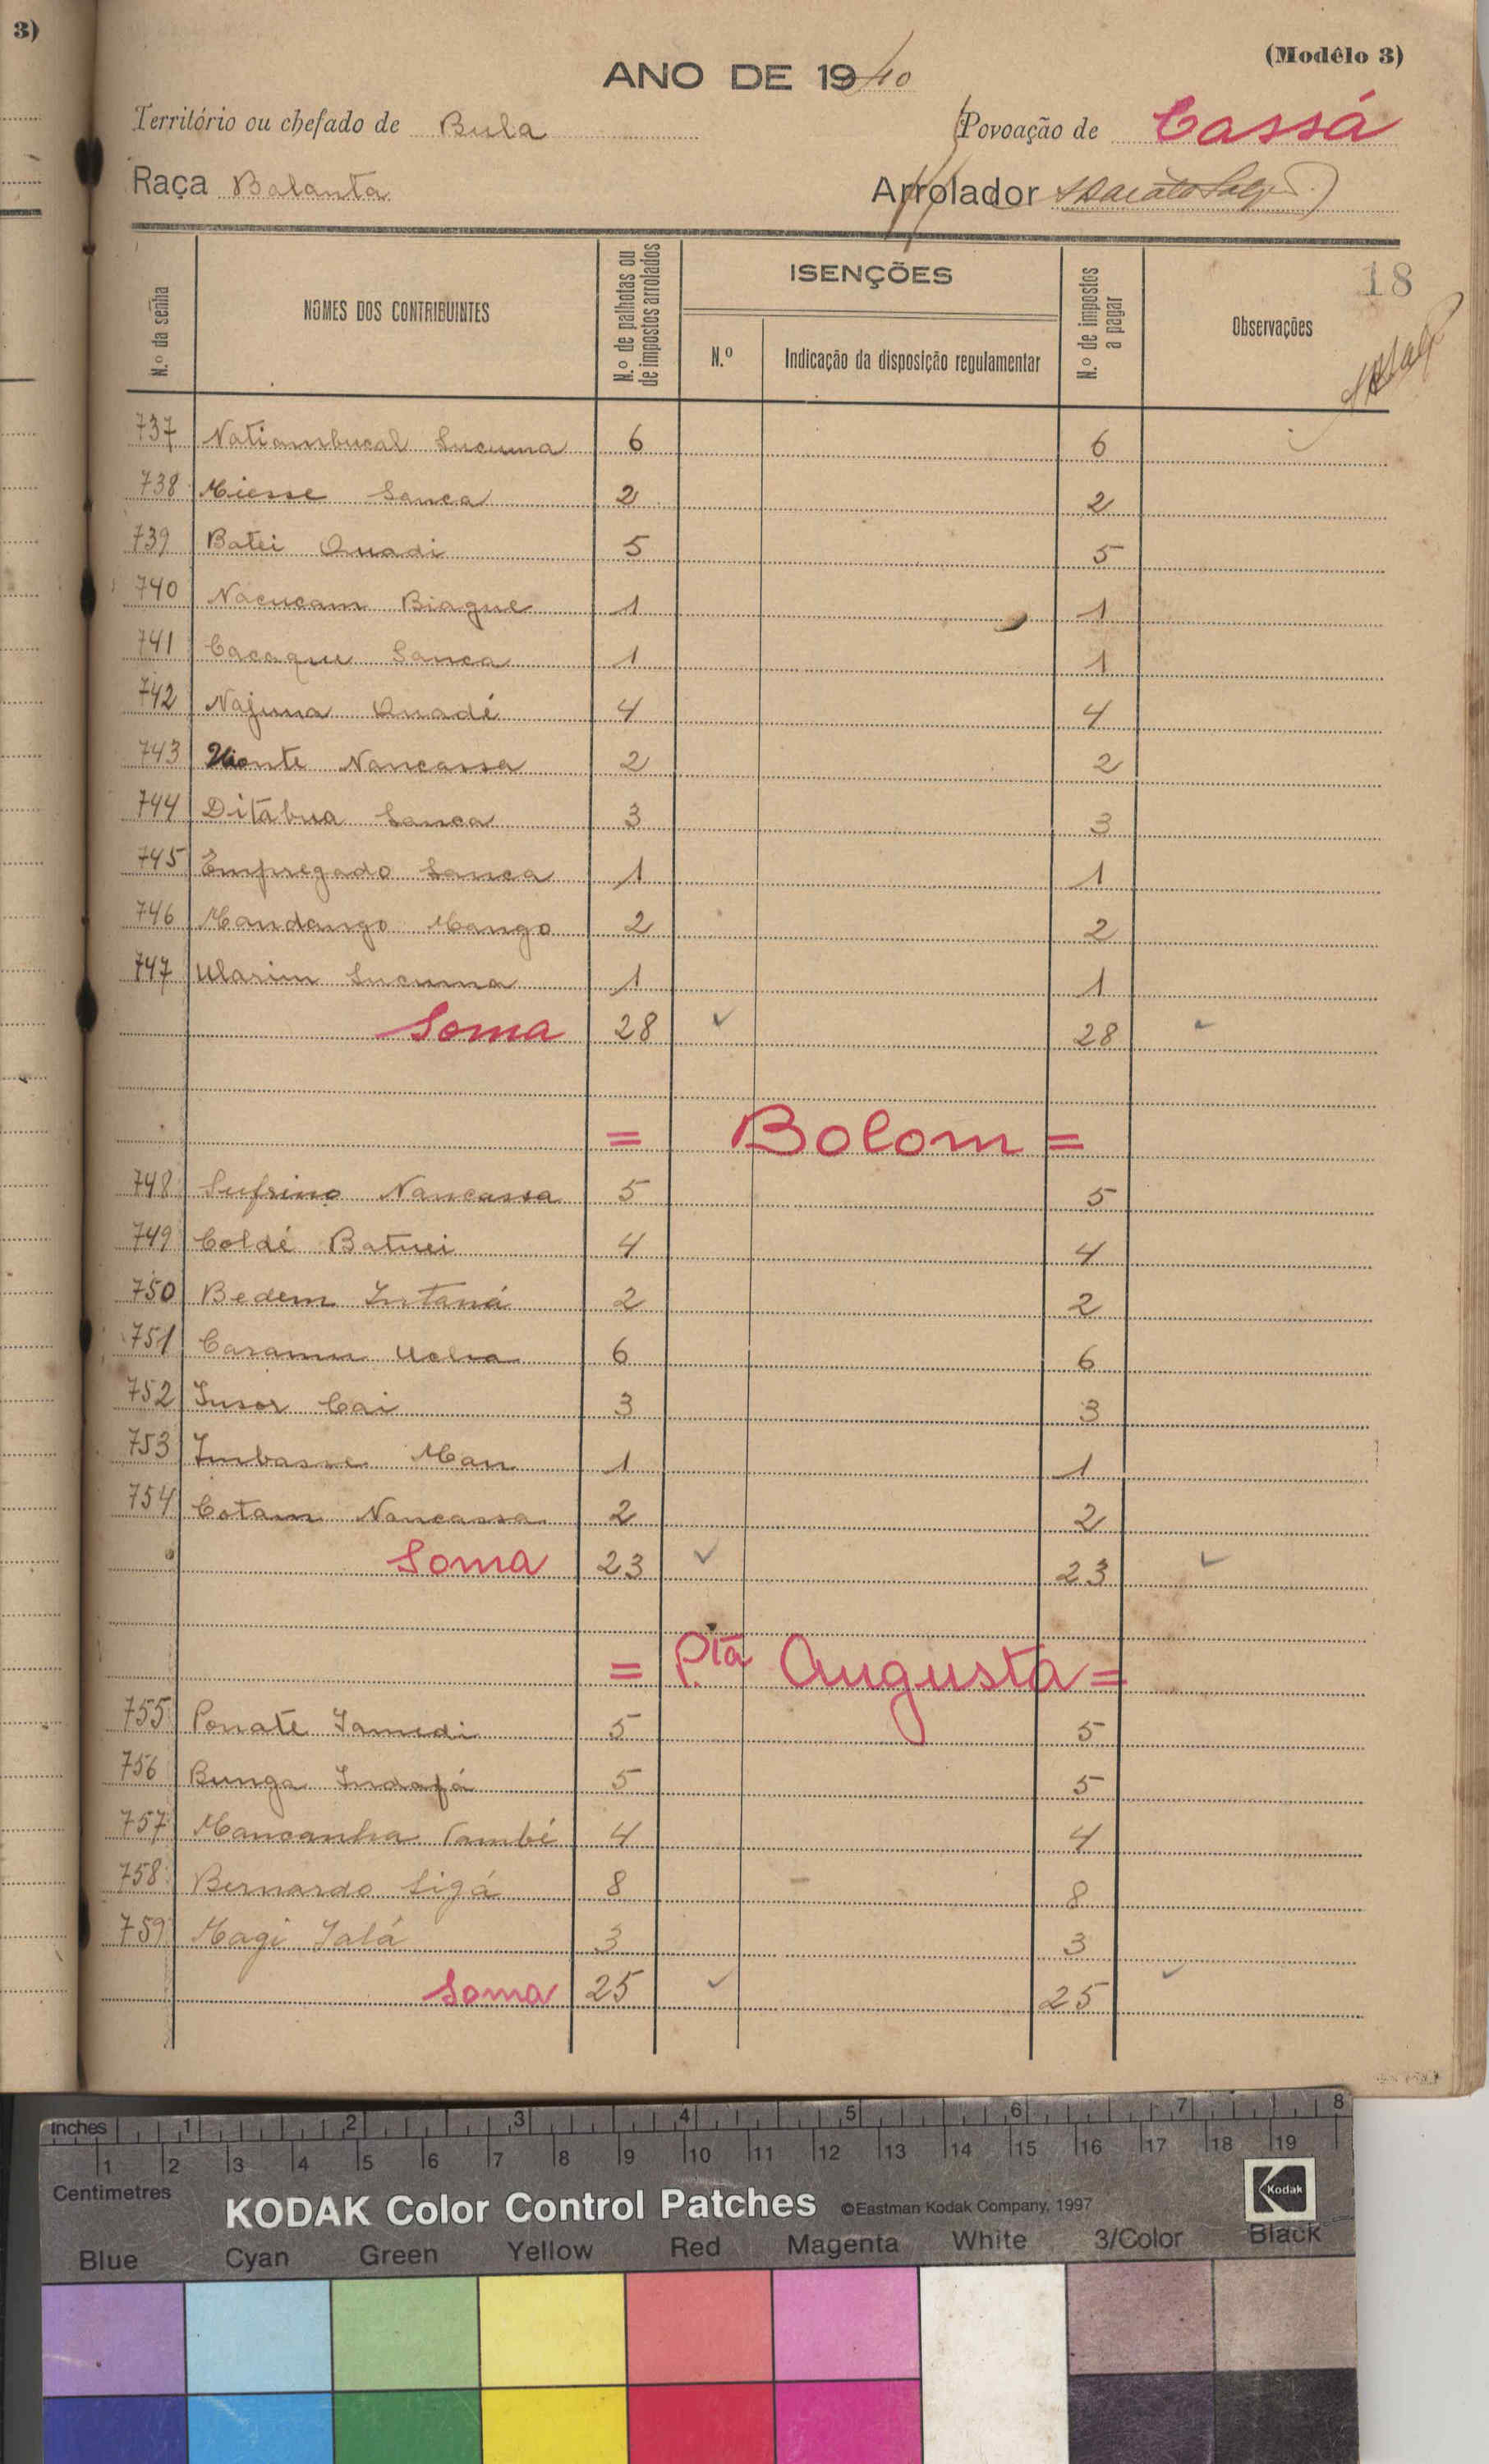 3)
(Modêlo 3)
ANO DE 1940
Território ou chefado de Bula
Povoação de Cassá
Raça Balanta
Arrolador
18
N.º da senha
NOMES DOS CONTRIBUINTES
N.º de palhotas ou de impostos arrolados
ISENÇÕES
N.º
Indicação da disposição regulamentar
N.º de impostos a pagar
Observações
737 Natiambucal Sucuma 6 6
738 Miesse Sanca 2 2
739 Batei Quadi 5 5
740 Nacucam Biague 1 1
741 Cacaque Sanca 1 1
742 Najuma Quadé 4 4
743 Nancassa 2 2
744 Ditabua Sanca 3 3
745 Empregado Sanca 1 1
746 Mandango Mango 2 2
747 Ularim Sucuma 1 1
Soma 28 28
= Bolom =
748 Sufrino Nancassa 5 5
749 Coldé Batuei 4 4
750 Bedem Intaná 2 2
751 Caramu Uclia 6 6
752 Insor Cai 3 3
753 Imbasse Man 1 1
754 Cotam Nancassa 2 2
Soma 23 23
= P.ta Augusta =
755 Ponate Iamedi 5 5
756 Bunga Indafá 5 5
757 Mancanha També 4 4
758 Bernardo Sigá 8 8
759 Magi Ialá 3 3
Soma 25 25
inches 1 2 3 4 5 6 7 8
1 2 3 4 5 6 7 8 9 10 11 12 13 14 15 16 17 18 19
Centimetres
KODAK Color Control Patches ©Eastman Kodak Company, 1997 Kodak
Blue Cyan Green Yellow Red Magenta White 3/Color Black